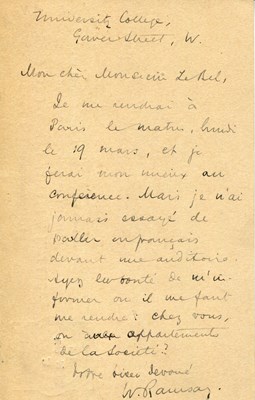 University College,
Gower Street, W.
Mon cher Monsieur Le Bel,
Je me rendrai à
Paris le matin, lundi
le 19 mars, et je
ferai mon mieux au
conférence. Mais je n'ai
jamais essayé de
parler en français
devant une auditoire.
Ayez la bonté de m'in-
former où il me faut
me rendre: chez vous,
ou aux appartements
de la Société?
Votre bien dévoué
W. Ramsay.